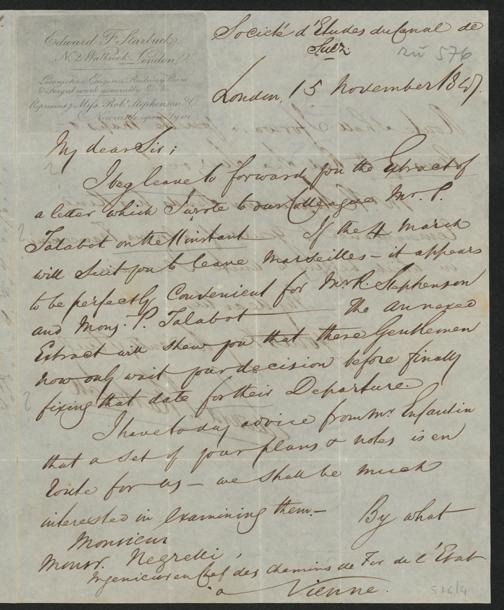 Edward F. Starbuck
No 2 Walbrook London
Locomotive Engines, Railway Bars
& forged work generally &c &c
Represents Messrs Robt Stephenson & Co
Newcastle upon Tyne
Société d'Etudes du Canal de
Suez
576
London, 15 November 1847.
My dear Sir;
I beg leave to forward you the Extract of
a letter which I wrote to our Colleague Mr. P.
Talabot on the 11 instant If the 4 March
will suit you to leave Marseilles – it appears
to be perfectly convenient for Mr R. Stephenson
and Mons. P. Talabot The annexed
Extract will shew you that these Gentlemen
now only wait your decision before finally
fixing that date for their Departure
I have today advice from Mr. Enfantin
that a set of your plans & notes is en
route for us – we shall be much
interested in examining them. – By what
Monsieur
Monsr. Negrelli,
Ingenieur en Chef des chemins de Fer de l'Etat
a Vienne.
576/4